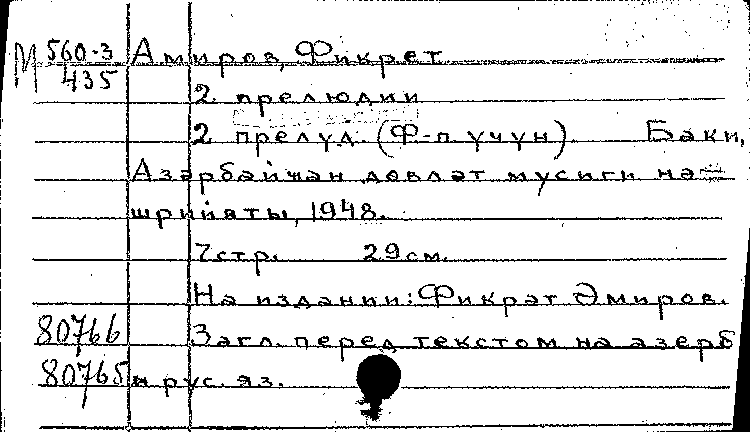 М 560-3 Амиров, Фикрет
435
2 прелюдии
2 прелуд. (Ф-п. учун). Баки,
Азәрбайчан довләт мусиги на-
шрийяты, 1948.
7 стр. 29 см.
На издании: Фикрәт Әмиров.
80766 Загл. перед текстом на азерб
80765 и рус. яз.